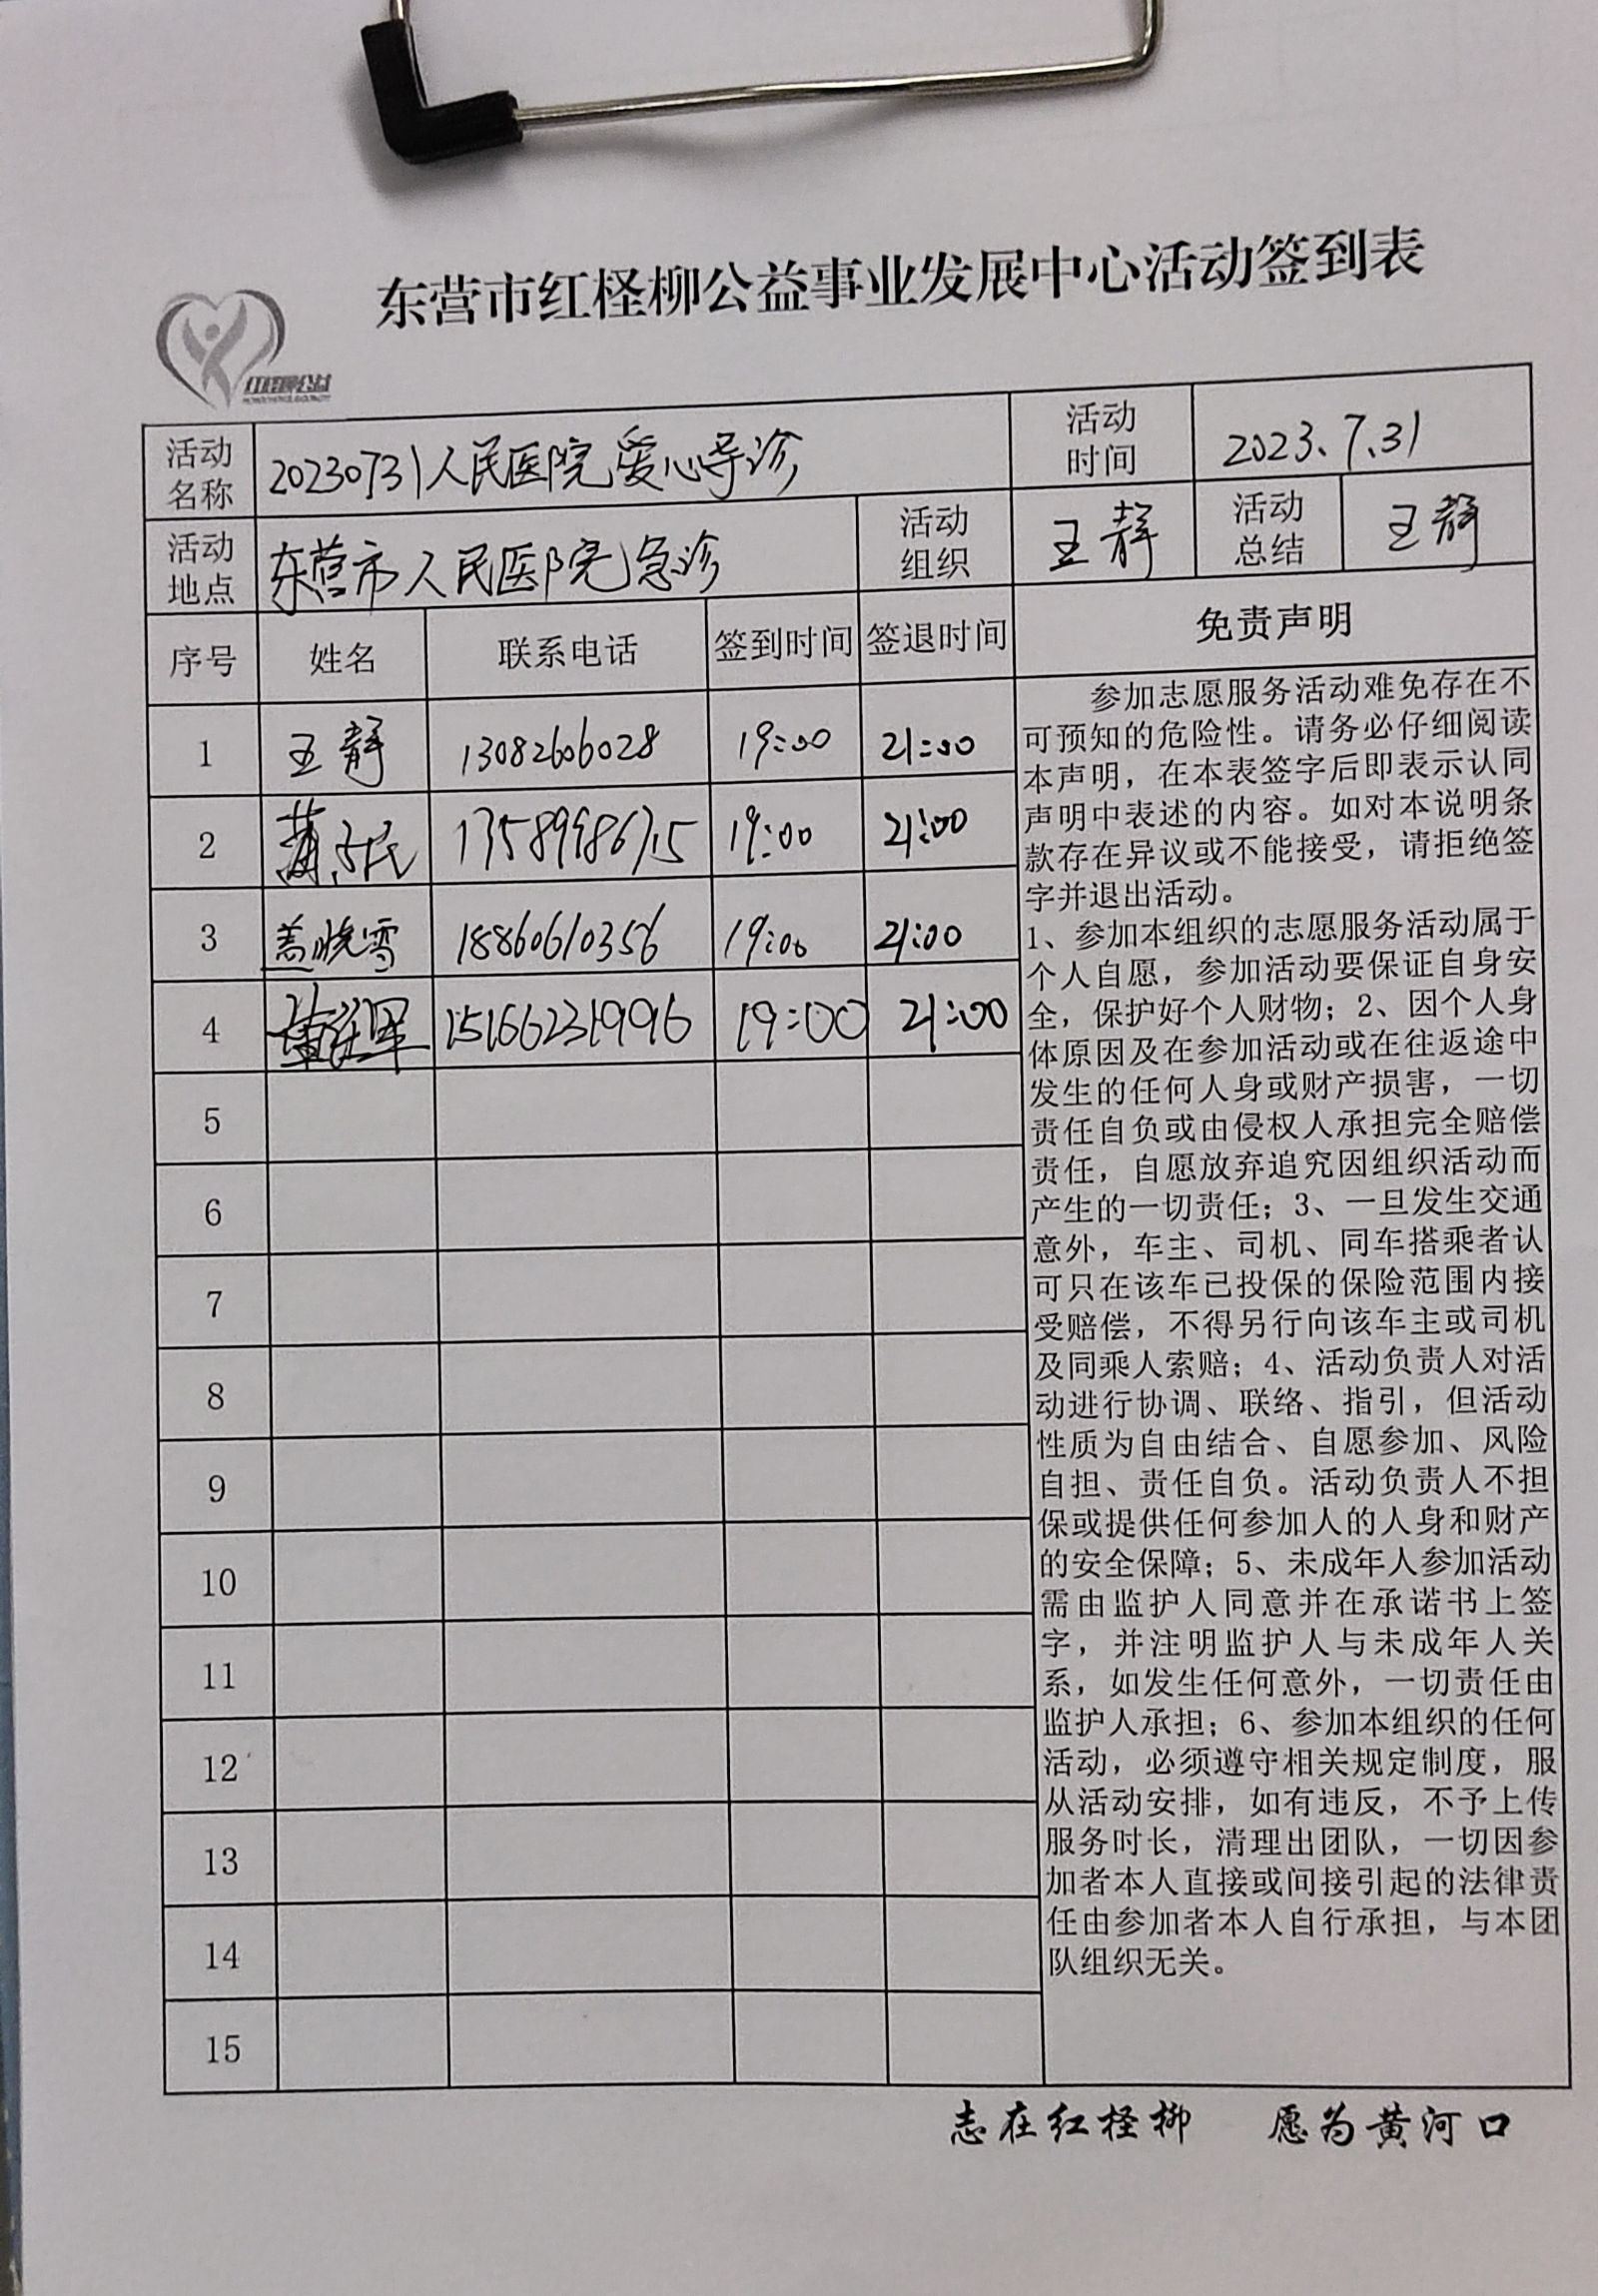 东营市红柽柳公益事业发展中心活动签到表
红柽柳公益
活动名称 20230731人民医院爱心导诊 活动时间 2023.7.31
活动地点 东营市人民医院急诊 活动组织 王静 活动总结 王静
序号 姓名 联系电话 签到时间 签退时间 免责声明
1 王静 13082606028 19:00 21:00
2 13589986715 19:00 21:00
3 盖晓雪 18860610356 19:00 21:00
4 15166231996 19:00 21:00
5
6
7
8
9
10
11
12
13
14
15
参加志愿服务活动难免存在不
可预知的危险性。请务必仔细阅读
本声明，在本表签字后即表示认同
声明中表述的内容。如对本说明条
款存在异议或不能接受，请拒绝签
字并退出活动。
1、参加本组织的志愿服务活动属于
个人自愿，参加活动要保证自身安
全，保护好个人财物；2、因个人身
体原因及在参加活动或在往返途中
发生的任何人身或财产损害，一切
责任自负或由侵权人承担完全赔偿
责任，自愿放弃追究因组织活动而
产生的一切责任；3、一旦发生交通
意外，车主、司机、同车搭乘者认
可只在该车已投保的保险范围内接
受赔偿，不得另行向该车主或司机
及同乘人索赔；4、活动负责人对活
动进行协调、联络、指引，但活动
性质为自由结合、自愿参加、风险
自担、责任自负。活动负责人不担
保或提供任何参加人的人身和财产
的安全保障；5、未成年人参加活动
需由监护人同意并在承诺书上签
字，并注明监护人与未成年人关
系，如发生任何意外，一切责任由
监护人承担；6、参加本组织的任何
活动，必须遵守相关规定制度，服
从活动安排，如有违反，不予上传
服务时长，清理出团队，一切因参
加者本人直接或间接引起的法律责
任由参加者本人自行承担，与本团
队组织无关。
志在红柽柳 愿为黄河口